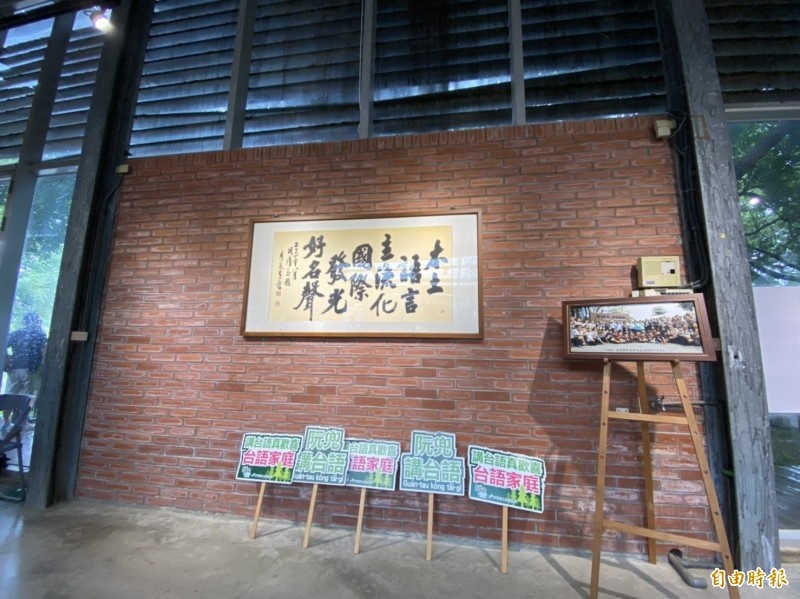 本土
語言
主流化
國際
發光
好名聲
講台語真歡喜
台語家庭
阮兜
講台語
Guán-tau kóng tâi-gí
台語真歡喜
語家庭
阮兜
講台語
Guán-tau kóng tâi-gí
講台語真歡喜
台語家庭
自由時報